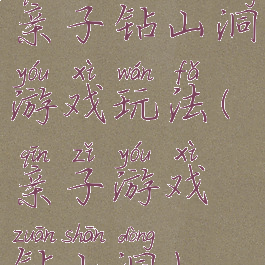 亲子钻山洞
yóu xì wán fǎ
游戏玩法(
qīn zǐ yóu xì
亲子游戏
zuān shān dòng
钻山洞)